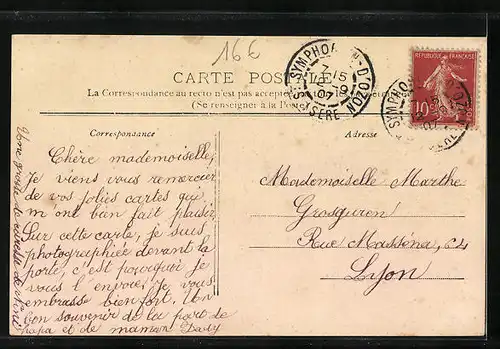 16 €
CARTE POSTALE
La Correspondance au recto n'est pas acceptée
(Se renseigner à la Poste)
ST SYMPHORIEN D'OZON
7 15
9
07
ISERE
REPUBLIQUE FRANÇAISE
10
Correspondance
Adresse
Chère mademoiselle,
Je viens vous remercier
de vos jolies cartes qui
m ont bien fait plaisir
Sur cette carte, je suis
photographiée devant la
porte, c'est pourquoi je
vous l'envoie, je vous
embrasse bien fort. Un
bon souvenir de la part de
papa et de maman Dady
Mademoiselle Marthe
Grosguron
Rue Masséna, 64
Lyon